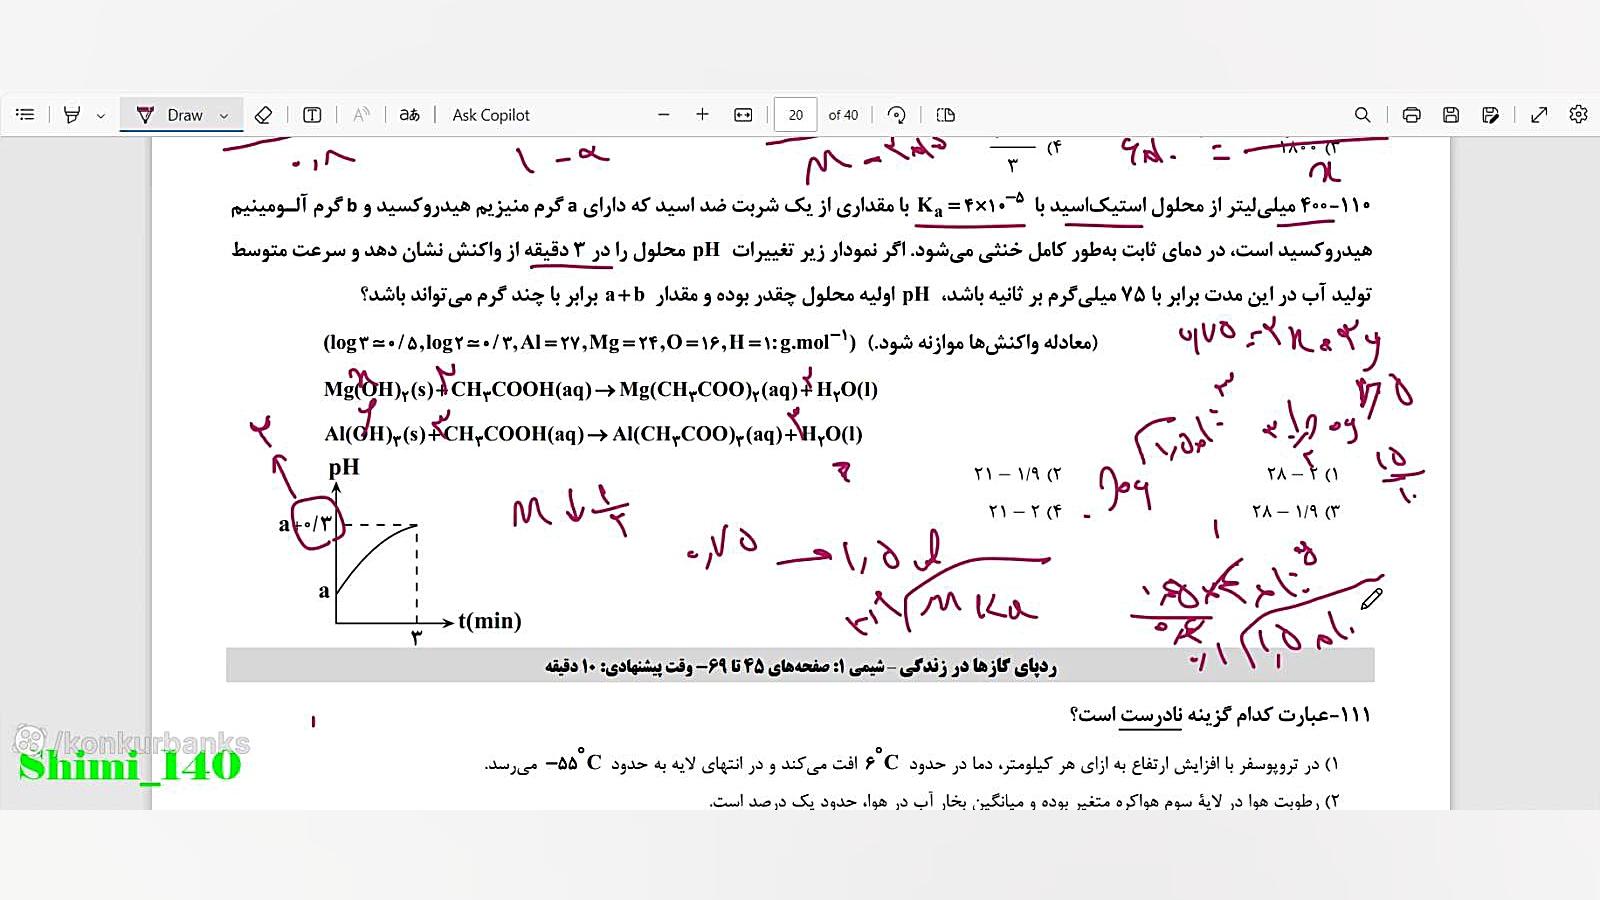 Draw
Ask Copilot
20 of 40
۱۸۰۰ (۳
۳ (۴
۱۱۰-۴۰۰ میلی‌لیتر از محلول استیک‌اسید با Kₐ = ۴×۱۰⁻⁵ با مقداری از یک شربت ضد اسید که دارای a گرم منیزیم هیدروکسید و b گرم آلـومینیم
هیدروکسید است، در دمای ثابت به‌طور کامل خنثی می‌شود. اگر نمودار زیر تغییرات pH محلول را در ۳ دقیقه از واکنش نشان دهد و سرعت متوسط
تولید آب در این مدت برابر با ۷۵ میلی‌گرم بر ثانیه باشد، pH اولیه محلول چقدر بوده و مقدار a+b برابر با چند گرم می‌تواند باشد؟
(معادله واکنش‌ها موازنه شود.) (log۳≃۰/۵,log۲≃۰/۳,Al=۲۷,Mg=۲۴,O=۱۶,H=۱:g.mol⁻¹)
۰٫۷۵ = ۲x + ۳y
Mg(OH)₂(s)+CH₃COOH(aq)→Mg(CH₃COO)₂(aq)+H₂O(l)
Al(OH)₃(s)+CH₃COOH(aq)→Al(CH₃COO)₃(aq)+H₂O(l)
۱) ۲ – ۲۸
۲) ۱/۹ – ۲۱
۳) ۱/۹ – ۲۸
۴) ۲ – ۲۱
pH
a+۰/۳
a
۳
t(min)
M ↓ ۱/۲
۰٫۷۵ → ۱٫۵
M Ka
ردپای گازها در زندگی – شیمی ۱: صفحه‌های ۴۵ تا ۶۹– وقت پیشنهادی: ۱۰ دقیقه
۱۱۱-عبارت کدام گزینه نادرست است؟
۱) در تروپوسفر با افزایش ارتفاع به ازای هر کیلومتر، دما در حدود ۶°C افت می‌کند و در انتهای لایه به حدود –۵۵°C می‌رسد.
۲) رطوبت هوا در لایهٔ سوم هواکره متغیر بوده و میانگین بخار آب در هوا، حدود یک درصد است.
/konkurbanks
Shimi_140